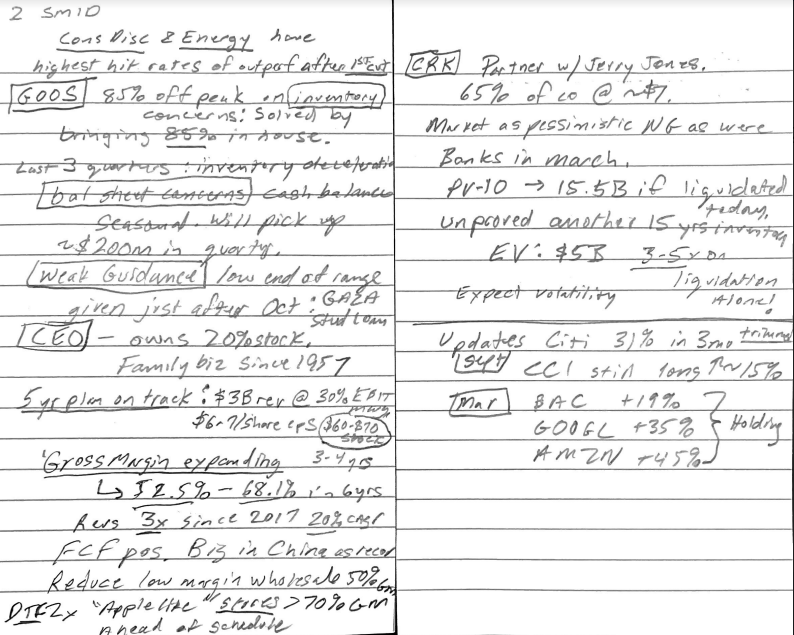 2 SMID
Cons Disc & Energy have
highest hit rates of outperf after 1st cut
GOOS 85% off peak on inventory
concerns: Solved by
bringing 85% in house.
Last 3 quarters: inventory deceleratio
bal sheet concerns cash balance
seasonal. will pick up
~$200m in quarty.
Weak Guidance low end of range
given just after Oct: GAZA
Stud Loan
CEO - owns 20% stock,
Family biz since 1957
5 yr plan on track: $3B rev @ 30% EBIT
$6-7/share eps $60-$70
stock
Gross Margin expanding 3-4 yrs
↳ 52.5% - 68.1% in 6 yrs
Revs 3x since 2017 20% cagr
FCF pos. Biz in China as recor
Reduce low margin wholesale 50% Gm
DTC 2x "Apple like" stores > 70% GM
Ahead of schedule
CRK Partner w/ Jerry Jones.
65% of co @ ~$7.
Market as pessimistic NG as were
Banks in march.
PV-10 → 15.5B if liquidated
today.
unproved another 15 yrs inventory
EV: $5B 3-5x on
liquidation
Alone!
Expect volatility
Updates Citi 31% in 3mo trimmed
Sept CCI still long ~15%
Mar BAC +19%
GOOGL +35% } Holding
AMZN +45%